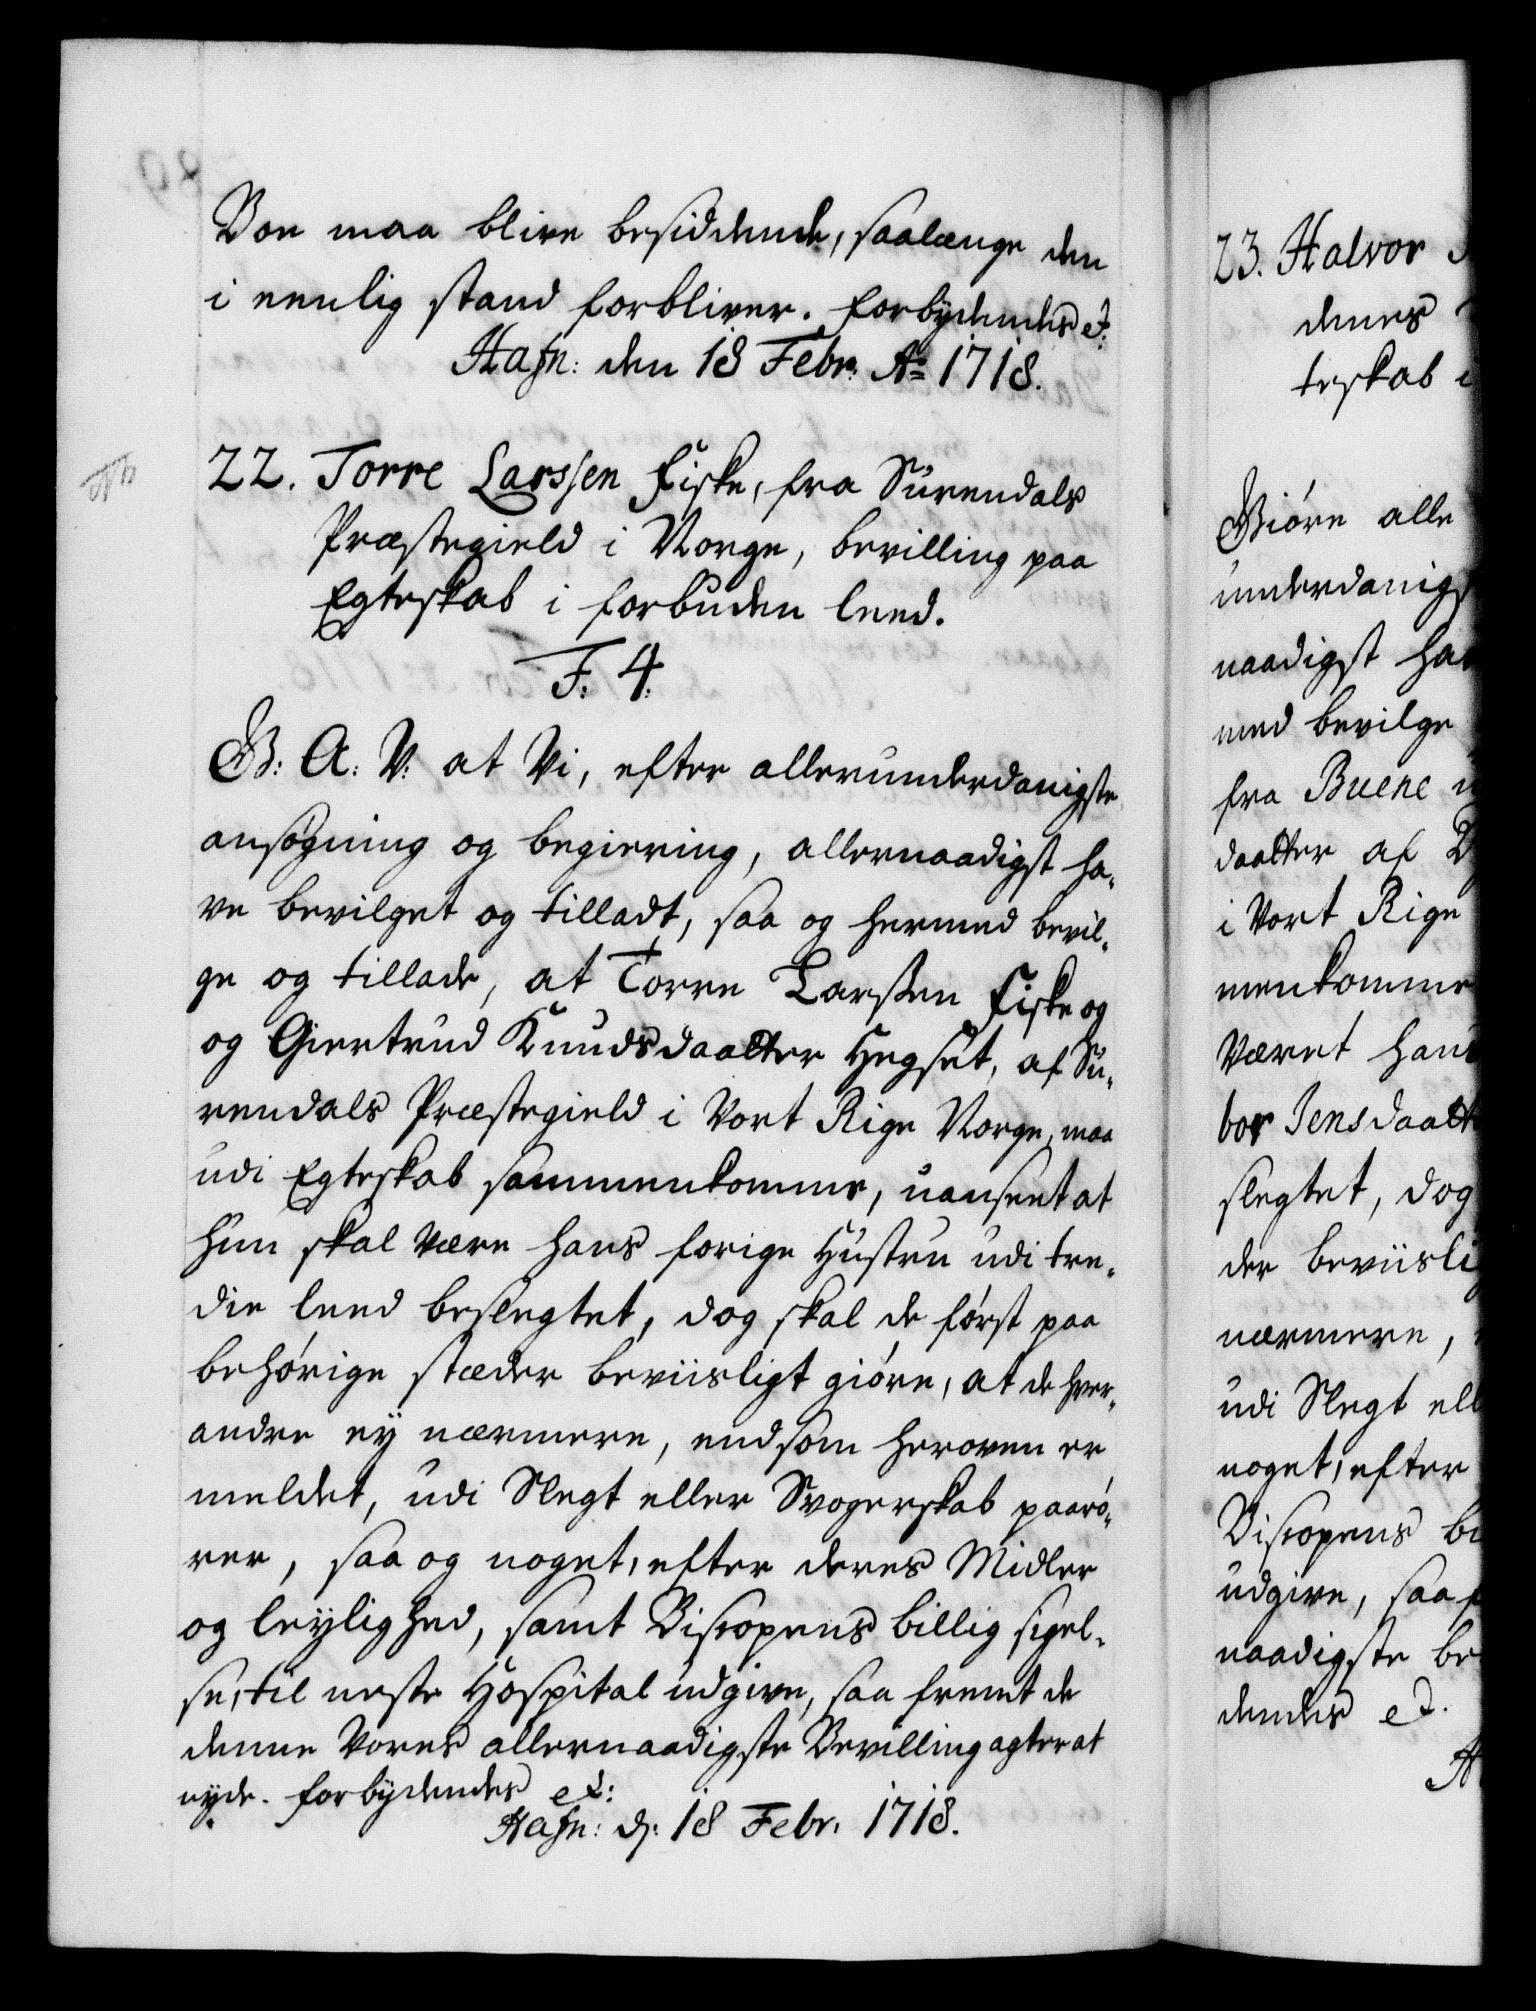 Boe maa blive besiddende, saalænge den
i eenlig stand forbliver. forbydendes et:
Hafn: den 18 Febr: Ao 1718.
22. Torre Larssen Fiske, fra Surendals
Præstegield i Norge, bevilling paa
Egteskab i forbuden leed.
F: 4.
G: A: V: at Vi, efter allerunderdanigste
ansøgning og begiering, allernaadigst ha-
ve bevilget og tilladt, saa og hermed bevil-
ge og tillade, at Torre Larssen Fiske og
og Giertrud Knudsdaatter Hegset, af Su-
rendals Præstegield i Vort Rige Norge, maa
udi Egteskab sammenkomme, uanseet at
hun skal være hans forige Hustru udi tre-
die leed beslegtet, dog skal de først paa
behørige stæder beviisligt giøre, at de hver-
andre ey nærmere, end som heroven er
meldet, udi Slegt eller Svogerskab paarø-
rer, saa og noget, efter deres Midler
og leylighed, samt Biscopens billig sigel-
se, til neste Hospital udgive, saa fremt de
denne Vores allernaadigste Bevilling agter at
nyde. forbydendes et:
Hafn: d: 18 Febr. 1718.
23. Halvor
denes
teskab i
Giøre alle
underdanigs
naadigst ha
med bevilge
fra Buene
daatter af
i Vort Rige
menkomme
Været hans
bor Jensdaatt
slegtet, dog
der beviisli
nærmere,
udi Slegt ell
noget, efter
Biscopens bi
udgive, saa f
naadigste be
dendes et.